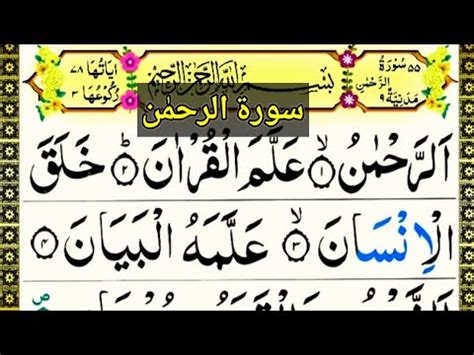 ۵۵ سُوْرَةُ الرَّحْمٰنِ مَدَنِيَّةٌ ۹
بِسْمِ اللّٰهِ الرَّحْمٰنِ الرَّحِيْمِ
اٰيَاتُهَا ۷۸ رُكُوْعُهَا ۳
سورة الرحمٰن
اَلرَّحْمٰنُ ۙ‏﴿۱﴾ عَلَّمَ الْقُرْاٰنَ ؕ‏﴿۲﴾ خَلَقَ
الْاِنْسَانَ ۙ‏﴿۳﴾ عَلَّمَهُ الْبَيَانَ ﴿۴﴾